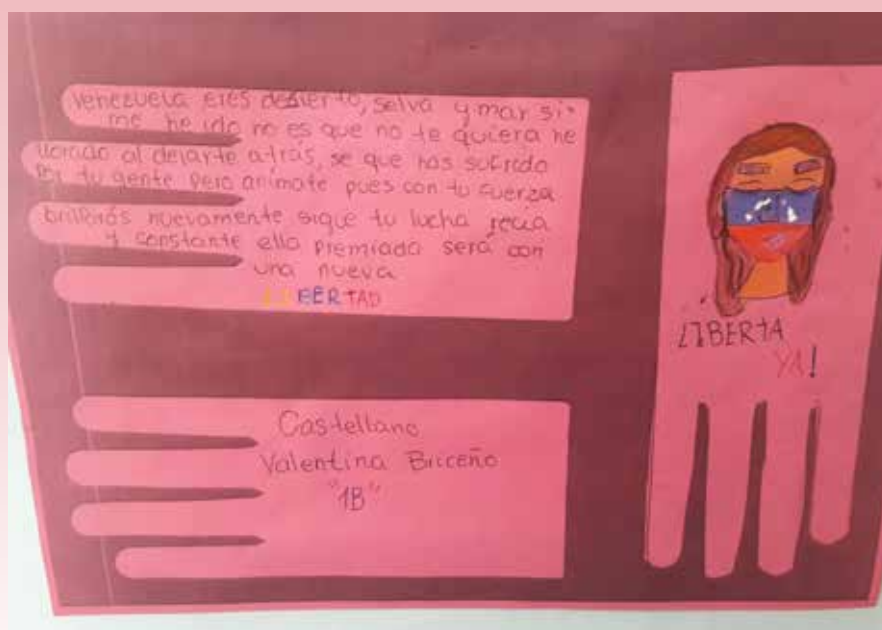 Venezuela eres desierto, selva y mar si
me he ido no es que no te quiera he
llorado al dejarte atrás, se que has sufrido
por tu gente pero animate pues con tu fuerza
brillarás nuevamente sigue tu lucha recia
y constante ella premiada será con
una nueva
LIBERTAD
¡LIBERTA
YA!
Castellano
Valentina Briceño
"1B"